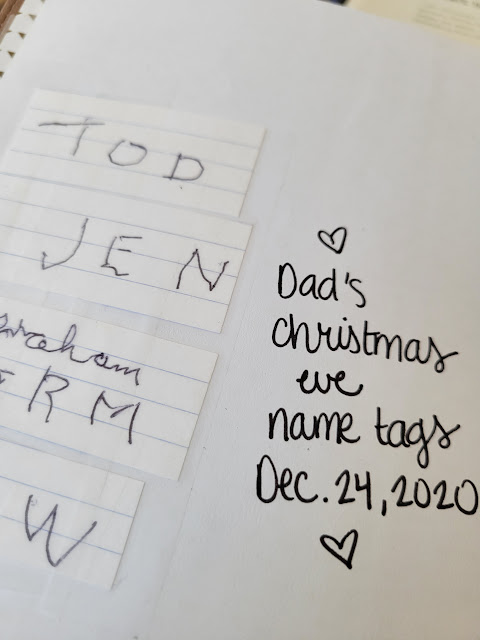 TOD
JEN
RM
W
Dad's
christmas
eve
name tags
Dec. 24, 2020